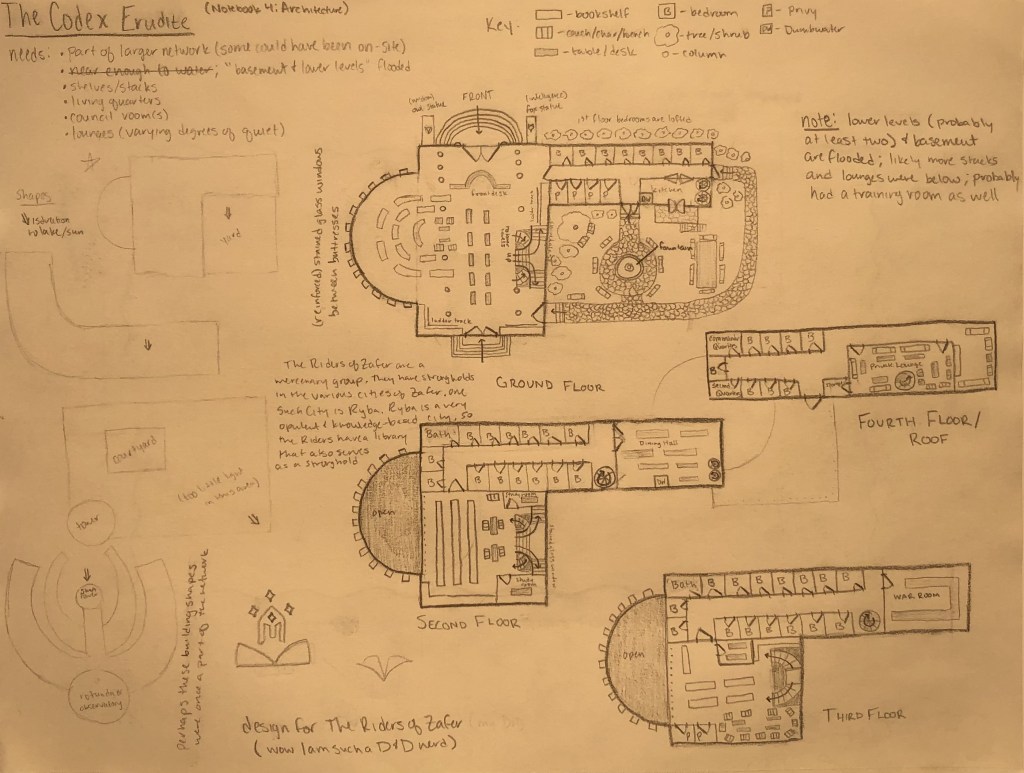 The Codex Erudite
(Notebook 4: Architecture)
needs: • part of larger network (some could have been on-site)
• near enough to water; "basement & lower levels" flooded
• shelves/stacks
• living quarters
• council room(s)
• lounges (varying degrees of quiet)
Key.
- bookshelf
- couch/chair/bench
- table/desk
B - bedroom
- tree/shrub
o - column
P - privy
DW - Dumbwaiter
note: lower levels (probably
at least two) & basement
are flooded; likely more stacks
and lounges were below; probably
had a training room as well
Shapes
is direction
to lake/sun
yard
courtyard
(too little light
in lower area)
tower
rotunda
observatory
perhaps these building shapes
were once a part of the network
(reinforced) stained glass windows
between buttresses
FRONT
owl statue
(intelligence)
fox statue
1st floor bedrooms are lofted
front desk
B B B B B B B B
P P P P
kitchen
DW
fountain
up
ladder track
GROUND FLOOR
The Riders of Zafer are a
mercenary group. They have strongholds
in the various cities of Zafer. One
such city is Ryba. Ryba is a very
opulent & knowledge-based city, so
the Riders have a library
that also serves
as a stronghold
Bath
B B B B B B
B
B
B B B B B B
Dining Hall
DW
open
study room
study room
SECOND FLOOR
Commander
Quarters
B B B B
B
Second
Quarters
B B B
Private Lounge
FOURTH FLOOR/
ROOF
Bath
B B B B B B B
B
B
B B B B B B
WAR ROOM
open
P P
THIRD FLOOR
design for The Riders of Zafer
(wow I am such a D&D nerd)